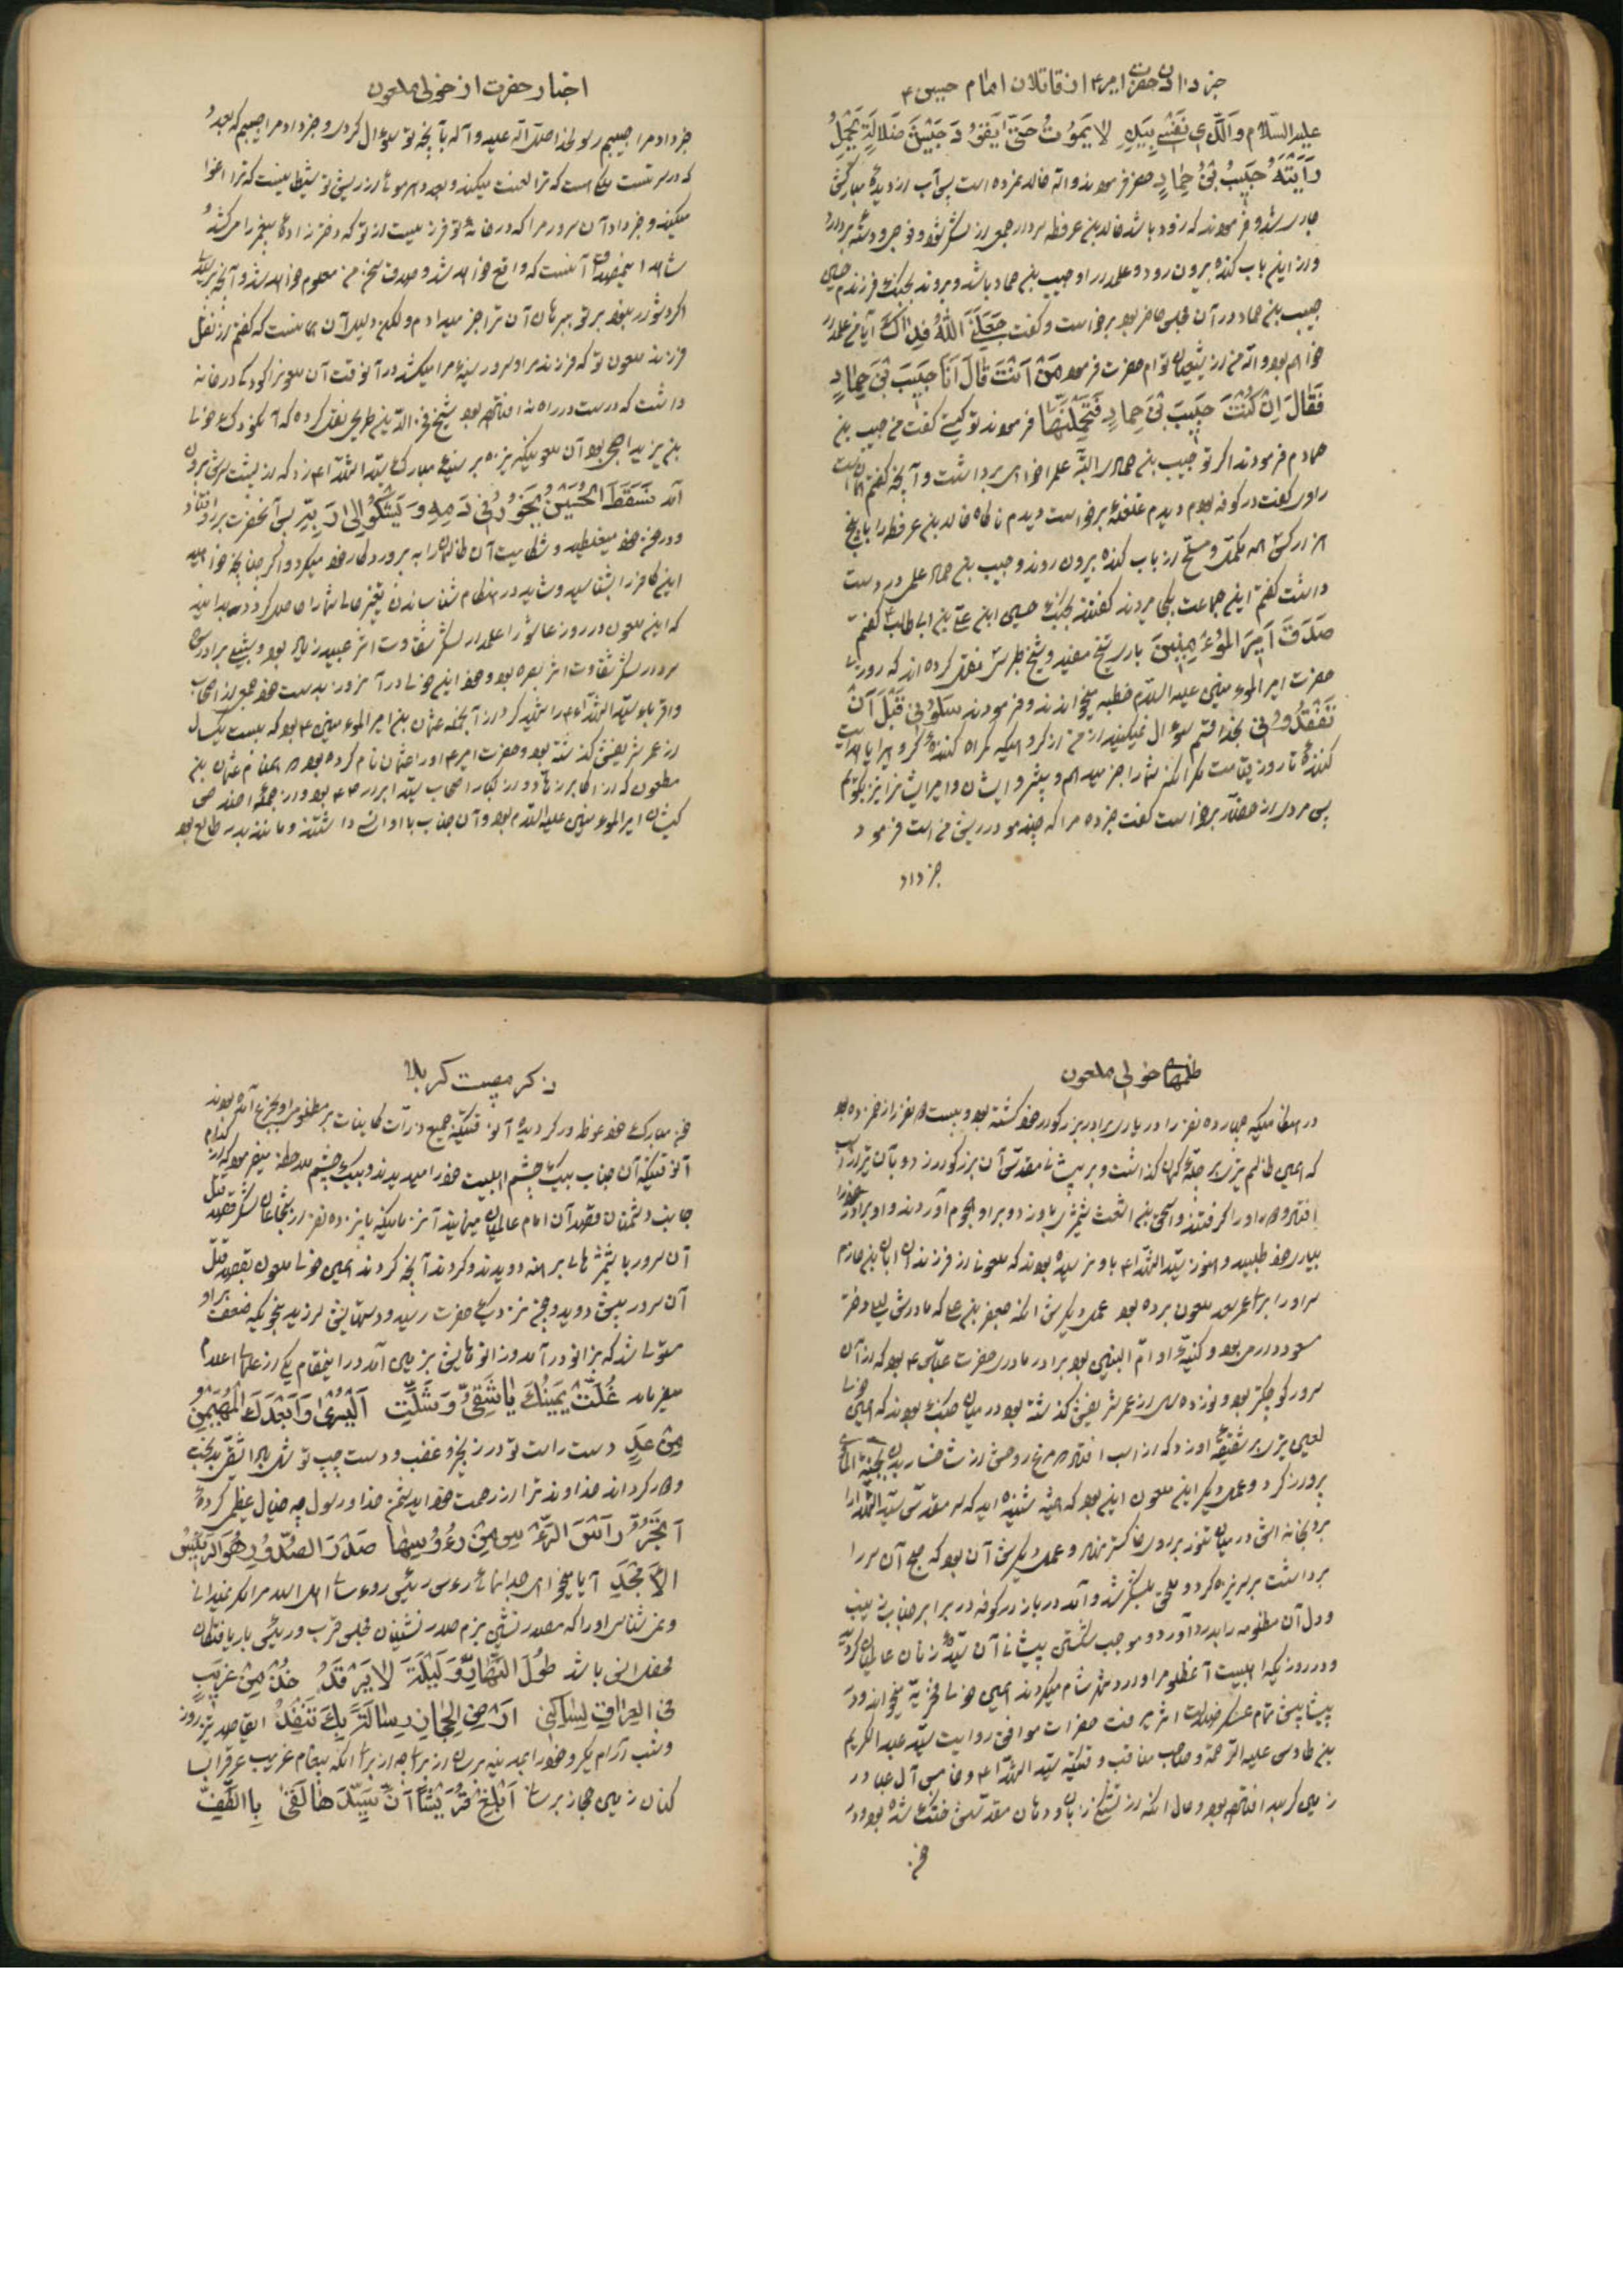 خبر دادن حضرت امیر ع از قاتلان امام حسین ع
علیه السلام والذی نفسی بیده لا یموت حتی یقود جیش ضلالة یحمل
رایته حبیب بن حماد حضرت فرمودند والله خالد نمرده است پس آب از دیده مبارکش
جاری شد و فرمودند که زود باشد خالد بن عرفطه سردار جمعی از لشکر شود و خروج
و از این باب کنده بیرون رود و علمدار او حبیب بن حماد باشد و بروند بجنگ فرزندم حسین
حبیب بن حماد در آن مجلس حاضر بود برخواست و گفت جعلنی الله فداک آیا من علمدار
خواهم بود والله من از شیعیان توام حضرت فرمود من انت قال انا حبیب بن حماد
فقال ان کنت حبیب بن حماد فتحملنها فرمودند تو کیستی گفت من حبیب بن
حمادم فرمودند اگر تو حبیب بن حمادی البته علم را خواهی برداشت و آنچه گفتم
راوی گفت در کوفه بودم دیدم غلغله برخواست دیدم ناگاه خالد بن عرفطه را با پنج
هزار کس همه مکمل و مسلح از باب کنده بیرون روند و حبیب بن حماد علمی در دست
داشت گفتم این جماعت بکجا میروند گفتند بجنگ حسین ابن علی بن ابی طالب ع گفتم
صدق امیر المؤمنین باری شیخ مفید و شیخ طبرسی نقل کرده اند که روزی
حضرت امیر المؤمنین علیه السلام خطبه میخواندند و فرمودند سلونی قبل ان
تفقدونی بخدا قسم سؤال نمیکنید از من از گروهیکه گمراه کننده گروهی را یا هدایت
کننده تا روز قیامت مگر آنکه شما را خبر میدهم و پیشرو ایشان
پس مردی از حضار برخواست گفت خبر ده مرا که چند مو در ریش من است فرمود
خبر داد
اخبار حضرت از خولی ملعون
خبر داد مرا حبیبم رسولخدا صلی الله علیه وآله بآنچه تو سؤال کردی و خبر داد مرا حبیبم که بعدد
که در سر تست ملکی است که ترا لعنت میکند و بعدد هر موی از ریش تو شیطانیست که ترا اغوا
میکند و خبر داد آن سرور مرا که در خانه تو فرزندیست از تو که دختر زاده پیغمبر را میکشد و
شاهد اینمقدمه آنست که واقع خواهد شد و صدق سخن من معلوم خواهد شد و آنچه پرسیدی
اگر دشوار نبود بر تو برهان آن ترا خبر میدادم ولکن دلیل آن همانست که گفتم از نقل
فرزند ملعون تو که فرزند مرا و سرور سینه مرا میکشد در آنوقت آن ملعون را کودکی در خانه
داشت که درست در راه نه افتاده بود شیخ فخر الدین طریحی نقل کرده که آنکودک خولی
بن یزید اصبحی بود آن ملعونیکه نیزه بر سینه مبارک سید الشهداء ع زد که از پشت سرش بیرون
آمد فسقط الحسین یخور فی دمه ویشکو الی ربه پس آنحضرت برو افتاد
و در خون خود میغلطید و شکایت آن ظالمان را به پروردگار خود میکرد و اگر چنانچه خواهید
این کافر را بشناسید و شاید در هنگام شناساندن تغییر حالی شما را حاصل گردد بدانید
که این ملعون در روز عاشورا علمدار لشکر شقاوت اثر عبید زیاد بود و
سردار لشکر شقاوت اثر بصره بود و خود این خولی در آنروز بدست خود جمعی از اصحاب
و اقربای سید الشهداء ع را شهید کرد از آنجمله عثمان بن امیر المؤمنین ع بود که بیست یکسال
از عمر شریفش گذشته بود و حضرت امیر ع او را عثمان نام کرده بود همنام عثمان بن
مظعون که از اکابر زهاد و از کبار اصحاب سید ابرار ص بود و از جمله
امیر المؤمنین علیه السلام بود و آن جناب با او انسی داشتند
ظلمهای خولی ملعون
در هنگامیکه چهارده نفر را در یاری برادر بزرگوار خود کشته بود و بیست نفر را زخم زده بود
که همین ظالم تیری بر چله کمان گذاشت و بر پیشانی مقدس آن بزرگوار زد و بآن تیر از اسب
افتاد و او را گرفتند و اسحق بن اشعث شمشیری باو زد و بر او هجوم آوردند و او برادر خود را
بیاری خود طلبید و هنوز سید الشهداء ع باو نرسیده بودند که ملعونی از فرزندان ابان بن حازم
سر او را برای عمر سعد ملعون برده بود عمل دیگرش آنکه جعفر بن علی که مادرش لیلی دختر
مسعود دارمی بود و کنیه او ام البنین بود برادر مادری حضرت عباس ع بود که از آن
سرور کوچکتر بود و نوزده سال از عمر شریفش گذشته بود در میان جنگ بودند که همین خولی
لعین تیری بر شقیقه او زد که از اسب افتاد مرغ روحش از شاخسار بدن بجنة الماوی
پرواز کرد و عمل دیگر این ملعون این بود که همه شنیده اید که سر مقدس سید الشهدا را
برد بخانه اش در میان تنور بر روی خاکستر نهاد و عمل دیگرش آن بود که صبح آن سر را
برداشت بر سر نیزه کرد و ملحق بلشکر شد و آمد در بازار کوفه در برابر جناب زینب
و دل آن مظلومه را بدرد آورد و موجب شکستن پیشانی آن سیده زنان عالمیان گردید
و در روزیکه اهلبیت آنمظلوم را وارد شهر شام میکردند همین خولی فخریه میخواند و در
پیشاپیش تمام عسکر ضلالت اثر میرفت حضرات موافق روایت سید عبد الکریم
بن طاوس علیه الرحمة و صاحب مناقب وقتیکه سید الشهداء ع و خامس آل عبا در
زمین کربلا افتاده بود و حال آنکه از تشنگی زبان و دهان مقدسش خشک شده بود و در
خون
ذکر مصیبت کربلا
خون مبارک خود غوطه ور گردیده آنوقتیکه جمیع ذرات کاینات بر مظلومی او بجزع آمده بودند
آنوقتیکه آن جناب بیک چشم اهلبیت خود را میدیدند و بیک چشم ملاحظه میفرمود که از کدام
جانب دشمنان قصد آن امام عالمیان مینمایند آنزمانیکه پانزده نفر از شجاعان لشکر قصد قتل
آن سرور با شمشیرهای برهنه دویدند و کردند آنچه کردند همین خولی ملعون بقصد قتل
آن سرور پیش دوید و چون نزدیک حضرت رسید دستهایش لرزید بنحویکه ضعف بر او
مستولی شد که بزانو در آمد و زانوهایش بزمین آمد در اینمقام یکی از علماء اعلام
میفرماید غلت یمینک یا شقی وشلت الیسری وابعدک المهیمن
من عل دست راست تو در زنجیر غضب و دست چپ تو شل باد ای شقی بدبخت
و دور کرداند خداوند ترا از رحمت خود ای دشمن خدا و رسول چه خیال عظیمی کرده
اتجز راس الرؤس من رؤوسها صدر الصدور هو الرئیس
الامجد آیا میخواهی جدا نمائی رأس رئیس روءسای اهل الله را مگر نمیدانی
ونمیشناسی او را که مصدر نشین بزم صدر نشینان مجلس قرب و رئیس باریافتگان
محفل انس باشد طول النهار ولیلة لا یرقد خذ من غریب
فی العراق لساکنی ارض الحجاز رسالة بک تنفذ ایقاصد تیز رو روز
و شب آرام مگیر و خود را بمدینه برسان از برای چه از برای آنکه پیغام غریب عراق را بساکنان
زمین حجاز برسانی ابلغ قریشا ان سیدها لقی بالطف